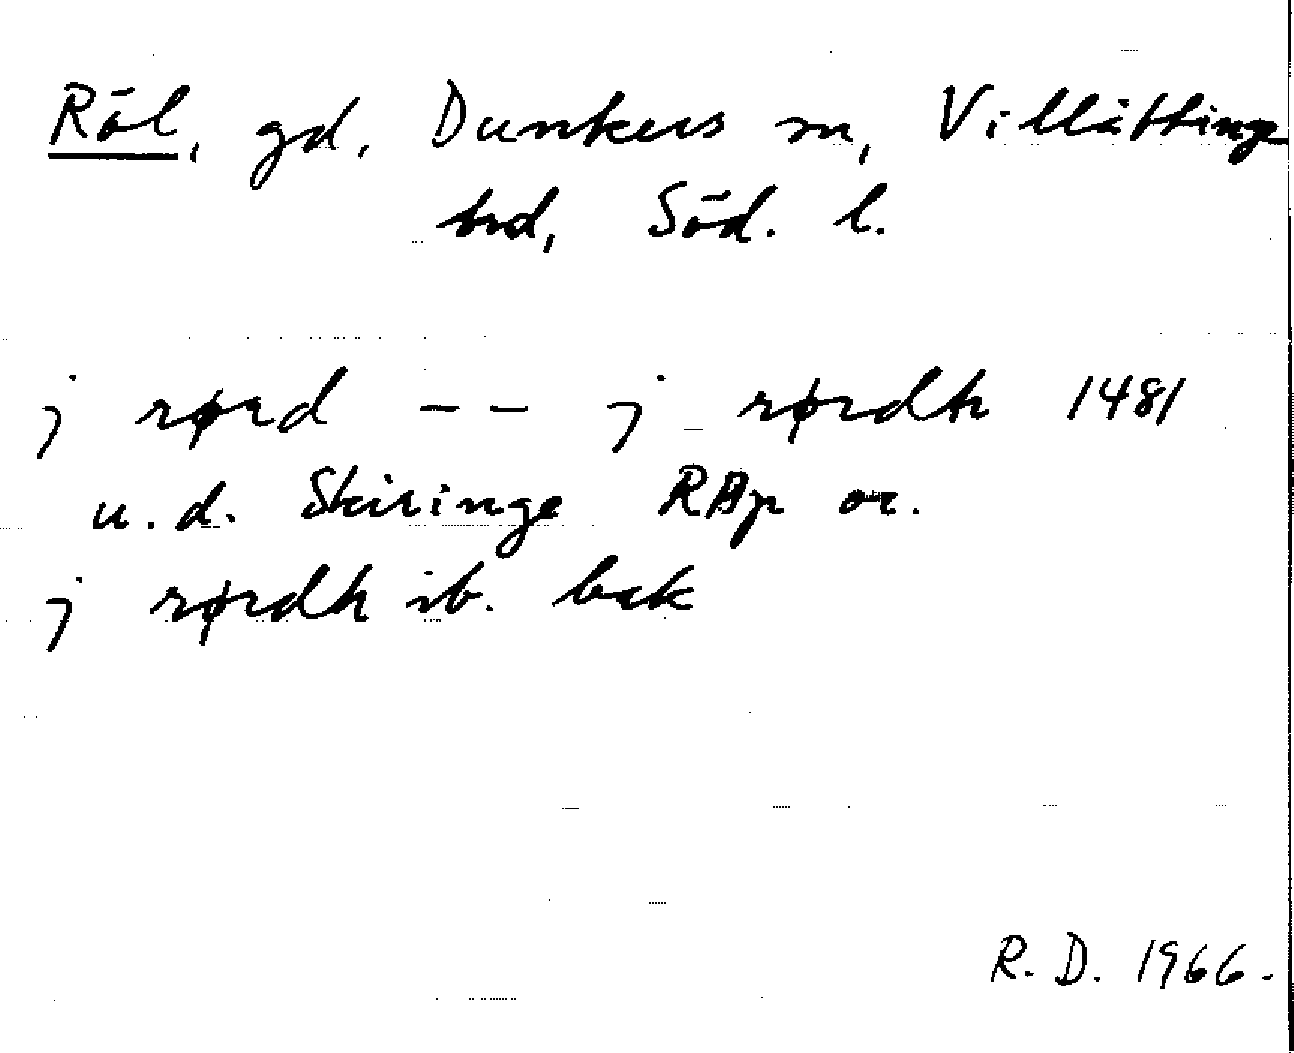 Röl, gd, Dunkers sn, Villåttinge
hrd, Söd. l.
j rørd -- j rørdh 1481
u.d. Skiringe RAp or.
j rørdh ib. bak
R. D. 1966.